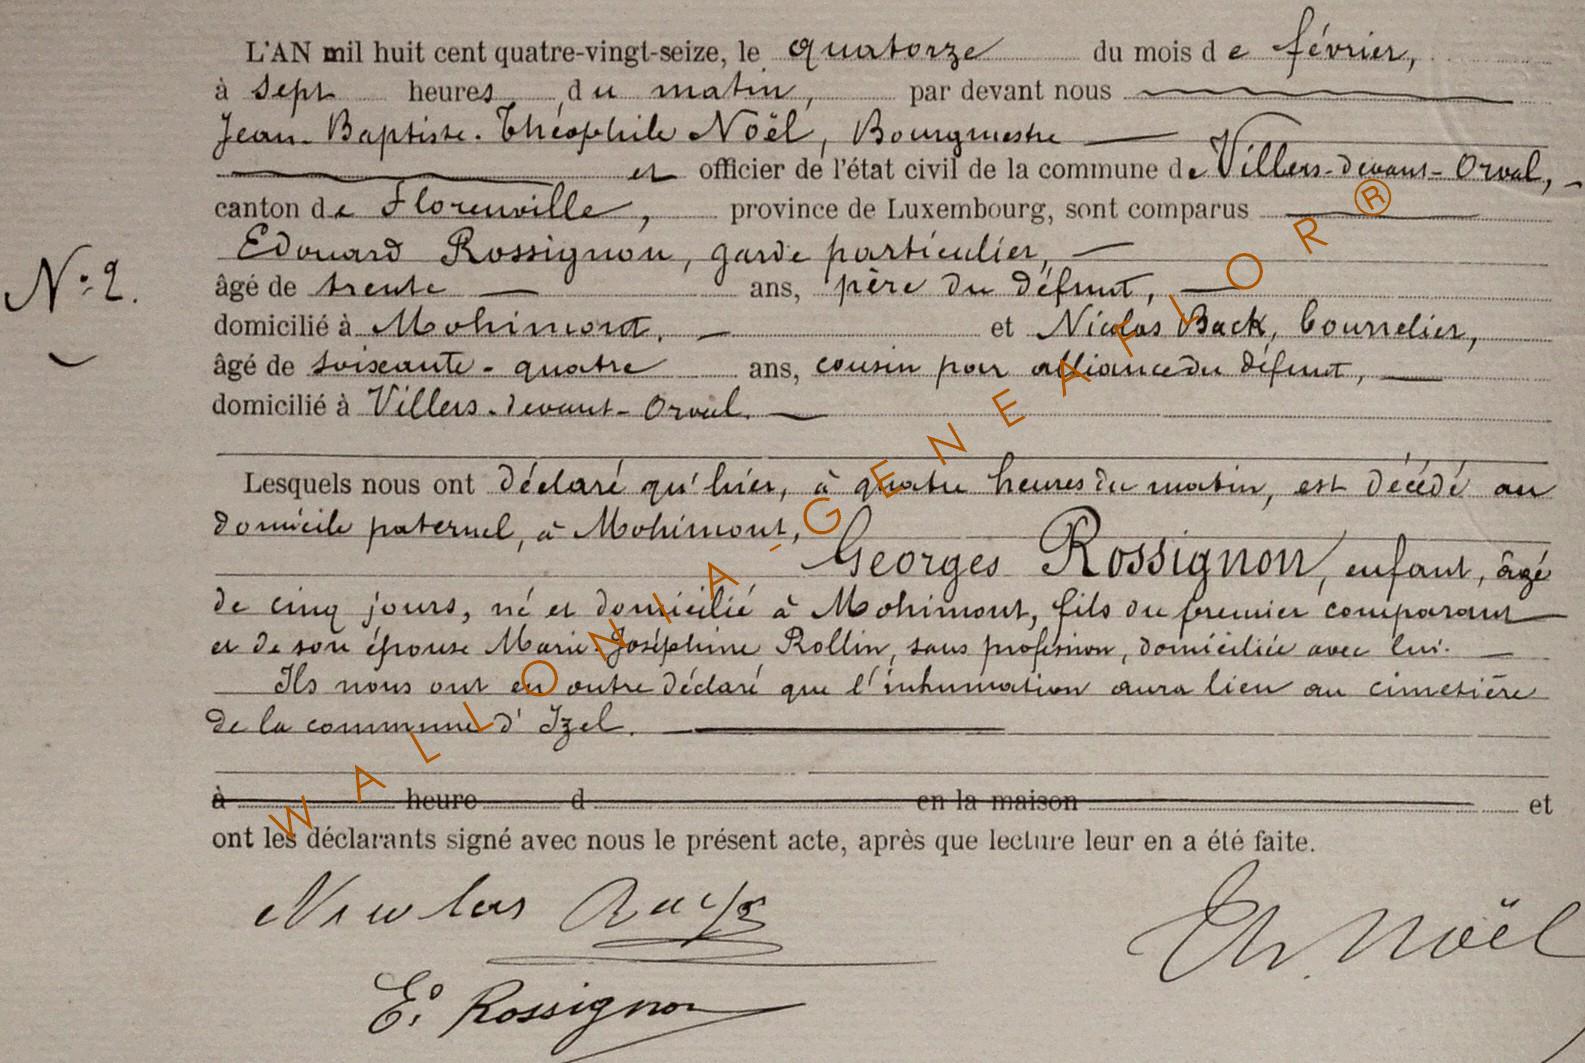 L'AN mil huit cent quatre-vingt-seize, le quatorze du mois de février,
à sept heures du matin, par devant nous
Jean-Baptiste-Théophile Noël, Bourgmestre
et officier de l'état civil de la commune de Villers-devant-Orval,
canton de Florenville, province de Luxembourg, sont comparus
Edouard Rossignon, garde particulier,
N° 2.
âgé de trente ans, père du défunt,
domicilié à Mohimont, et Nicolas Back, bourrelier,
âgé de soixante-quatre ans, cousin par alliance du défunt,
domicilié à Villers-devant-Orval.
Lesquels nous ont déclaré qu'hier, à quatre heures du matin, est décédé au
domicile paternel, à Mohimont,
Georges Rossignon, enfant, âgé
de cinq jours, né et domicilié à Mohimont, fils du premier comparant
et de son épouse Marie-Joséphine Rollin, sans profession, domiciliée avec lui.
Ils nous ont en outre déclaré que l'inhumation aura lieu au cimetière
de la commune d'Izel.
à heure d en la maison et
ont les déclarants signé avec nous le présent acte, après que lecture leur en a été faite.
Nicolas
Th. Noël
Ed. Rossignon
WALLONIA-GENEAFLOR®